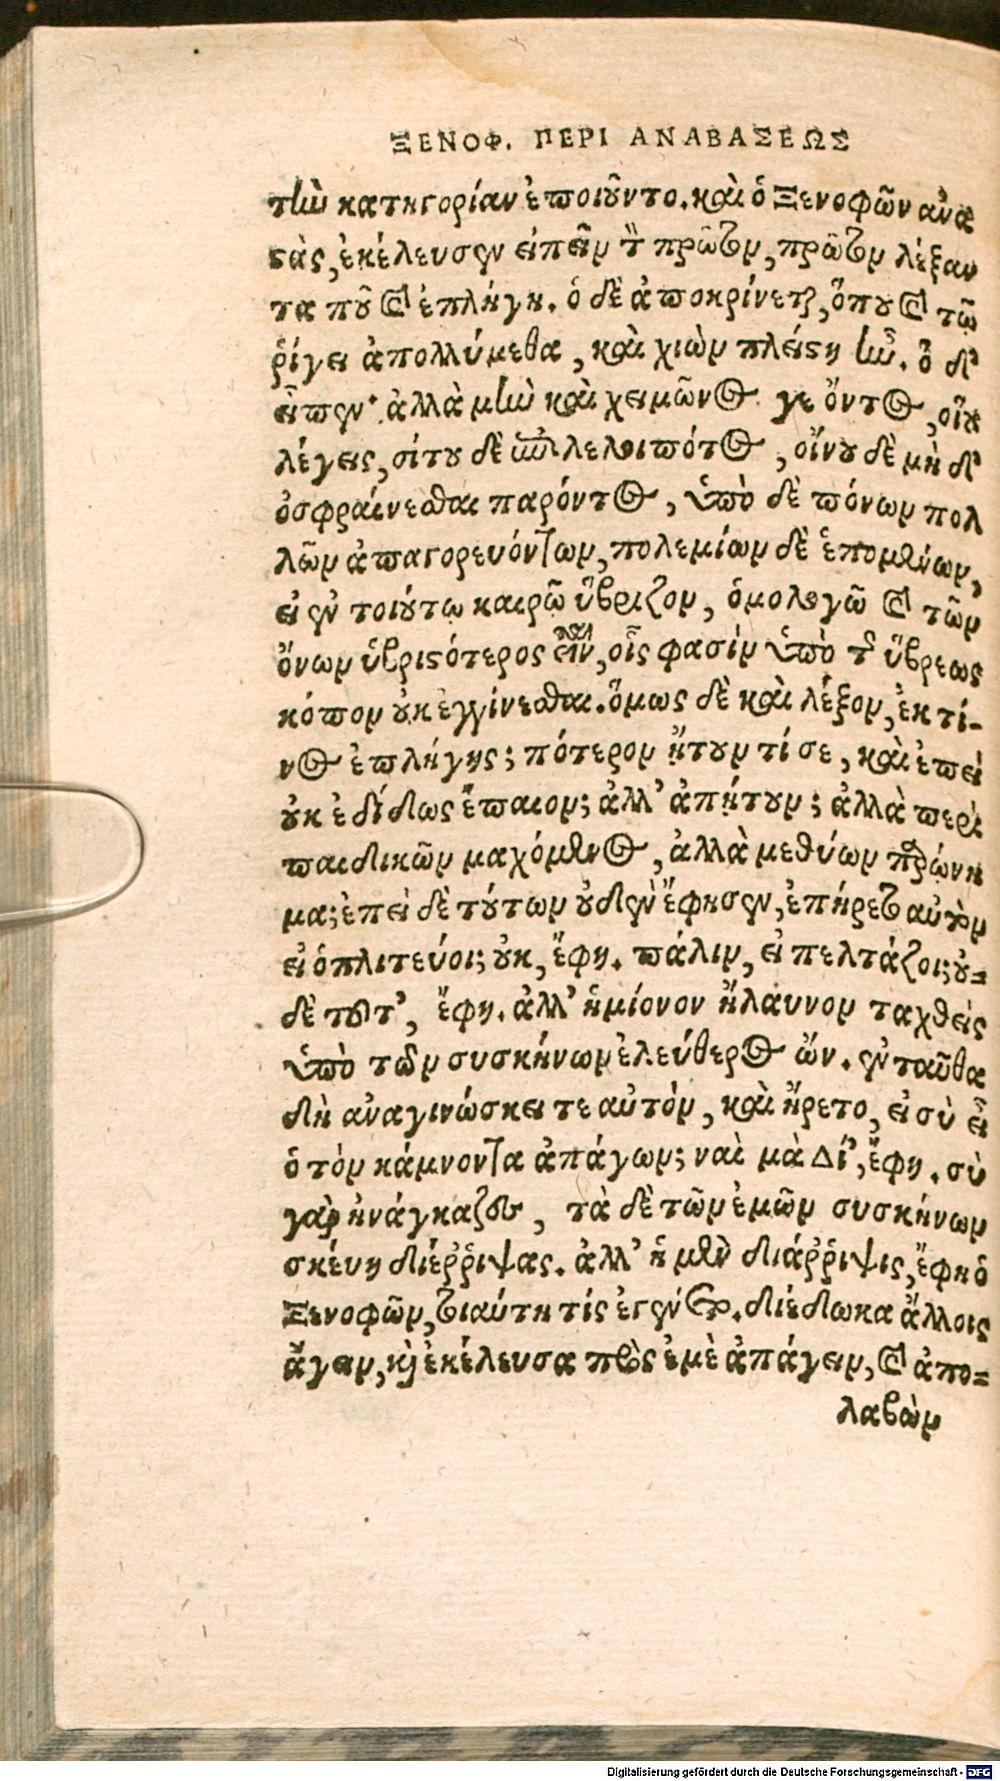 ΞΕΝΟΦ. ΠΕΡΙ ΑΝΑΒΑΣΕΩΣ
τὴν κατηγορίαν ἐποιοῦντο. καὶ ὁ Ξενοφῶν ἀνα
στὰς, ἐκέλευσεν εἰπεῖν τὸν πρῶτον, πρῶτον λέξαν
τα ποῦ καὶ ἐπλήγη. ὁ δὲ ἀποκρίνεται, ὅπου καὶ τῷ
ῥίγει ἀπολλύμεθα, καὶ χιὼν πλείστη ἦν. ὁ δ'
εἶπεν· ἀλλὰ μὴν καὶ χειμῶνος γε ὄντος, οἷον
λέγεις, σίτου δὲ ἐπιλελοιπότος, οἴνου δὲ μὴ δ'
ὀσφραίνεσθαι παρόντος, ὑπὸ δὲ πόνων πολ
λῶν ἀπαγορευόντων, πολεμίων δὲ ἑπομένων,
εἰ ἐν τοιούτῳ καιρῷ ὕβριζον, ὁμολογῶ καὶ τῶν
ὄνων ὑβριστότερος εἶναι, οἷς φασὶν ὑπὸ τῆς ὕβρεως
κόπον οὐκ ἐγγίνεσθαι. ὅμως δὲ καὶ λέξον, ἐκ τί-
νος ἐπλήγης; πότερον ᾔτουν τί σε, καὶ ἐπεί
οὐκ ἐδίδως ἔπαιον; ἀλλ' ἀπῄτουν; ἀλλὰ περὶ
παιδικῶν μαχόμενος, ἀλλὰ μεθύων παρῴνη
μα; ἐπεὶ δὲ τούτων οὐδὲν ἔφησεν, ἐπήρετο αὐτὸν
εἰ ὁπλιτεύοι; οὐκ, ἔφη. πάλιν, εἰ πελτάζοι; οὐ=
δὲ τοῦτ', ἔφη. ἀλλ' ἡμίονον ἤλαυνον ταχθεὶς
ὑπὸ τῶν συσκήνων ἐλεύθερος ὤν. ἐνταῦθα
δὴ ἀναγινώσκει τε αὐτόν, καὶ ἤρετο, εἰ σὺ εἶ
ὁ τὸν κάμνοντα ἀπάγων; ναὶ μὰ Δί', ἔφη. σὺ
γὰρ ἠνάγκαζες, τὰ δὲ τῶν ἐμῶν συσκήνων
σκεύη διέῤῥιψας. ἀλλ' ἡ μὲν διάῤῥιψις, ἔφη ὁ
Ξενοφῶν, τοιαύτη τίς ἐγένετο. διέδωκα ἄλλοις
ἄγειν, καὶ ἐκέλευσα πρὸς ἐμὲ ἀπάγειν, καὶ ἀπο=
λαβὼν
Digitalisierung gefördert durch die Deutsche Forschungsgemeinschaft - DFG